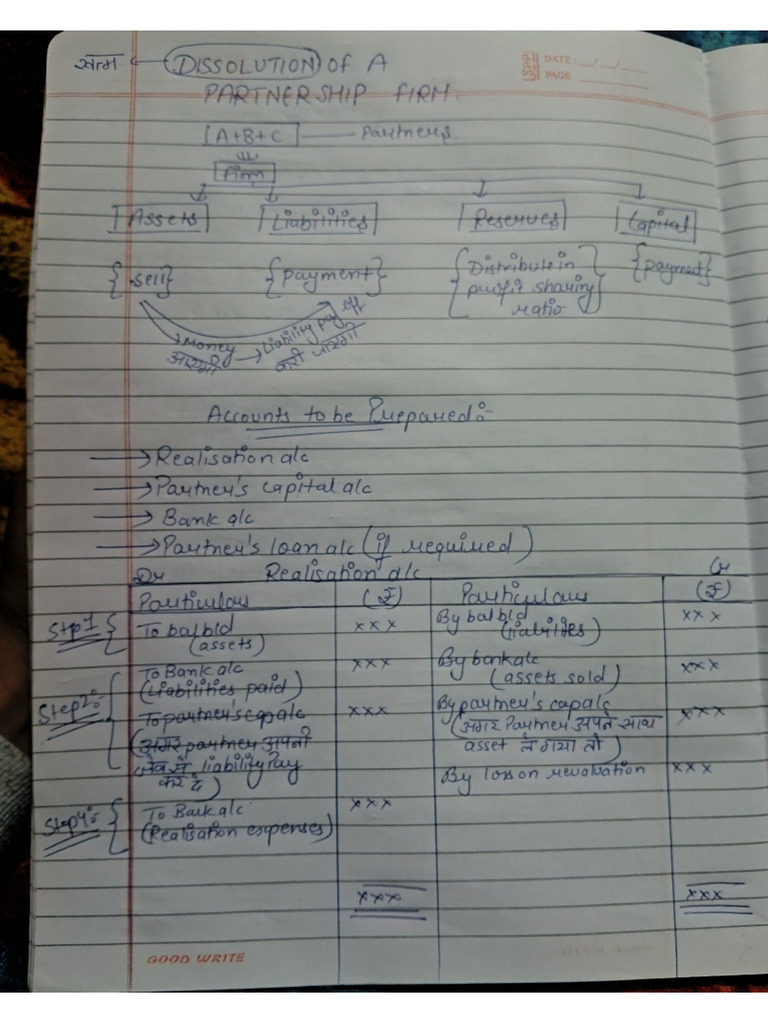 खत्म ← DISSOLUTION OF A
PARTNERSHIP FIRM.
DATE
PAGE
A+B+C — Partners
firm
Assets Liabilities Reserves Capital
{sell} {payment} {Distribute in profit sharing ratio} {payment}
→ Money → Liability pay off
आएगी करी जाएगी
Accounts to be Prepared:-
→ Realisation a/c
→ Partner's capital a/c
→ Bank a/c
→ Partner's loan a/c (if required)
Dr Realisation a/c Cr
Particulars (₹) Particulars (₹)
Step1 To bal b/d (assets) xxx By bal b/d (liabilities) xxx
Step2: To Bank a/c (Liabilities paid) xxx By bank a/c (assets sold) xxx
To partner's cap a/c xxx By partner's cap a/c xxx
(अगर partner अपनी (अगर Partner अपने साथ
जेब से liability Pay asset ले गया तो)
कर दे) By loss on revaluation xxx
Step4: To Bank a/c xxx
(Realisation expenses)
xxx xxx
GOOD WRITE